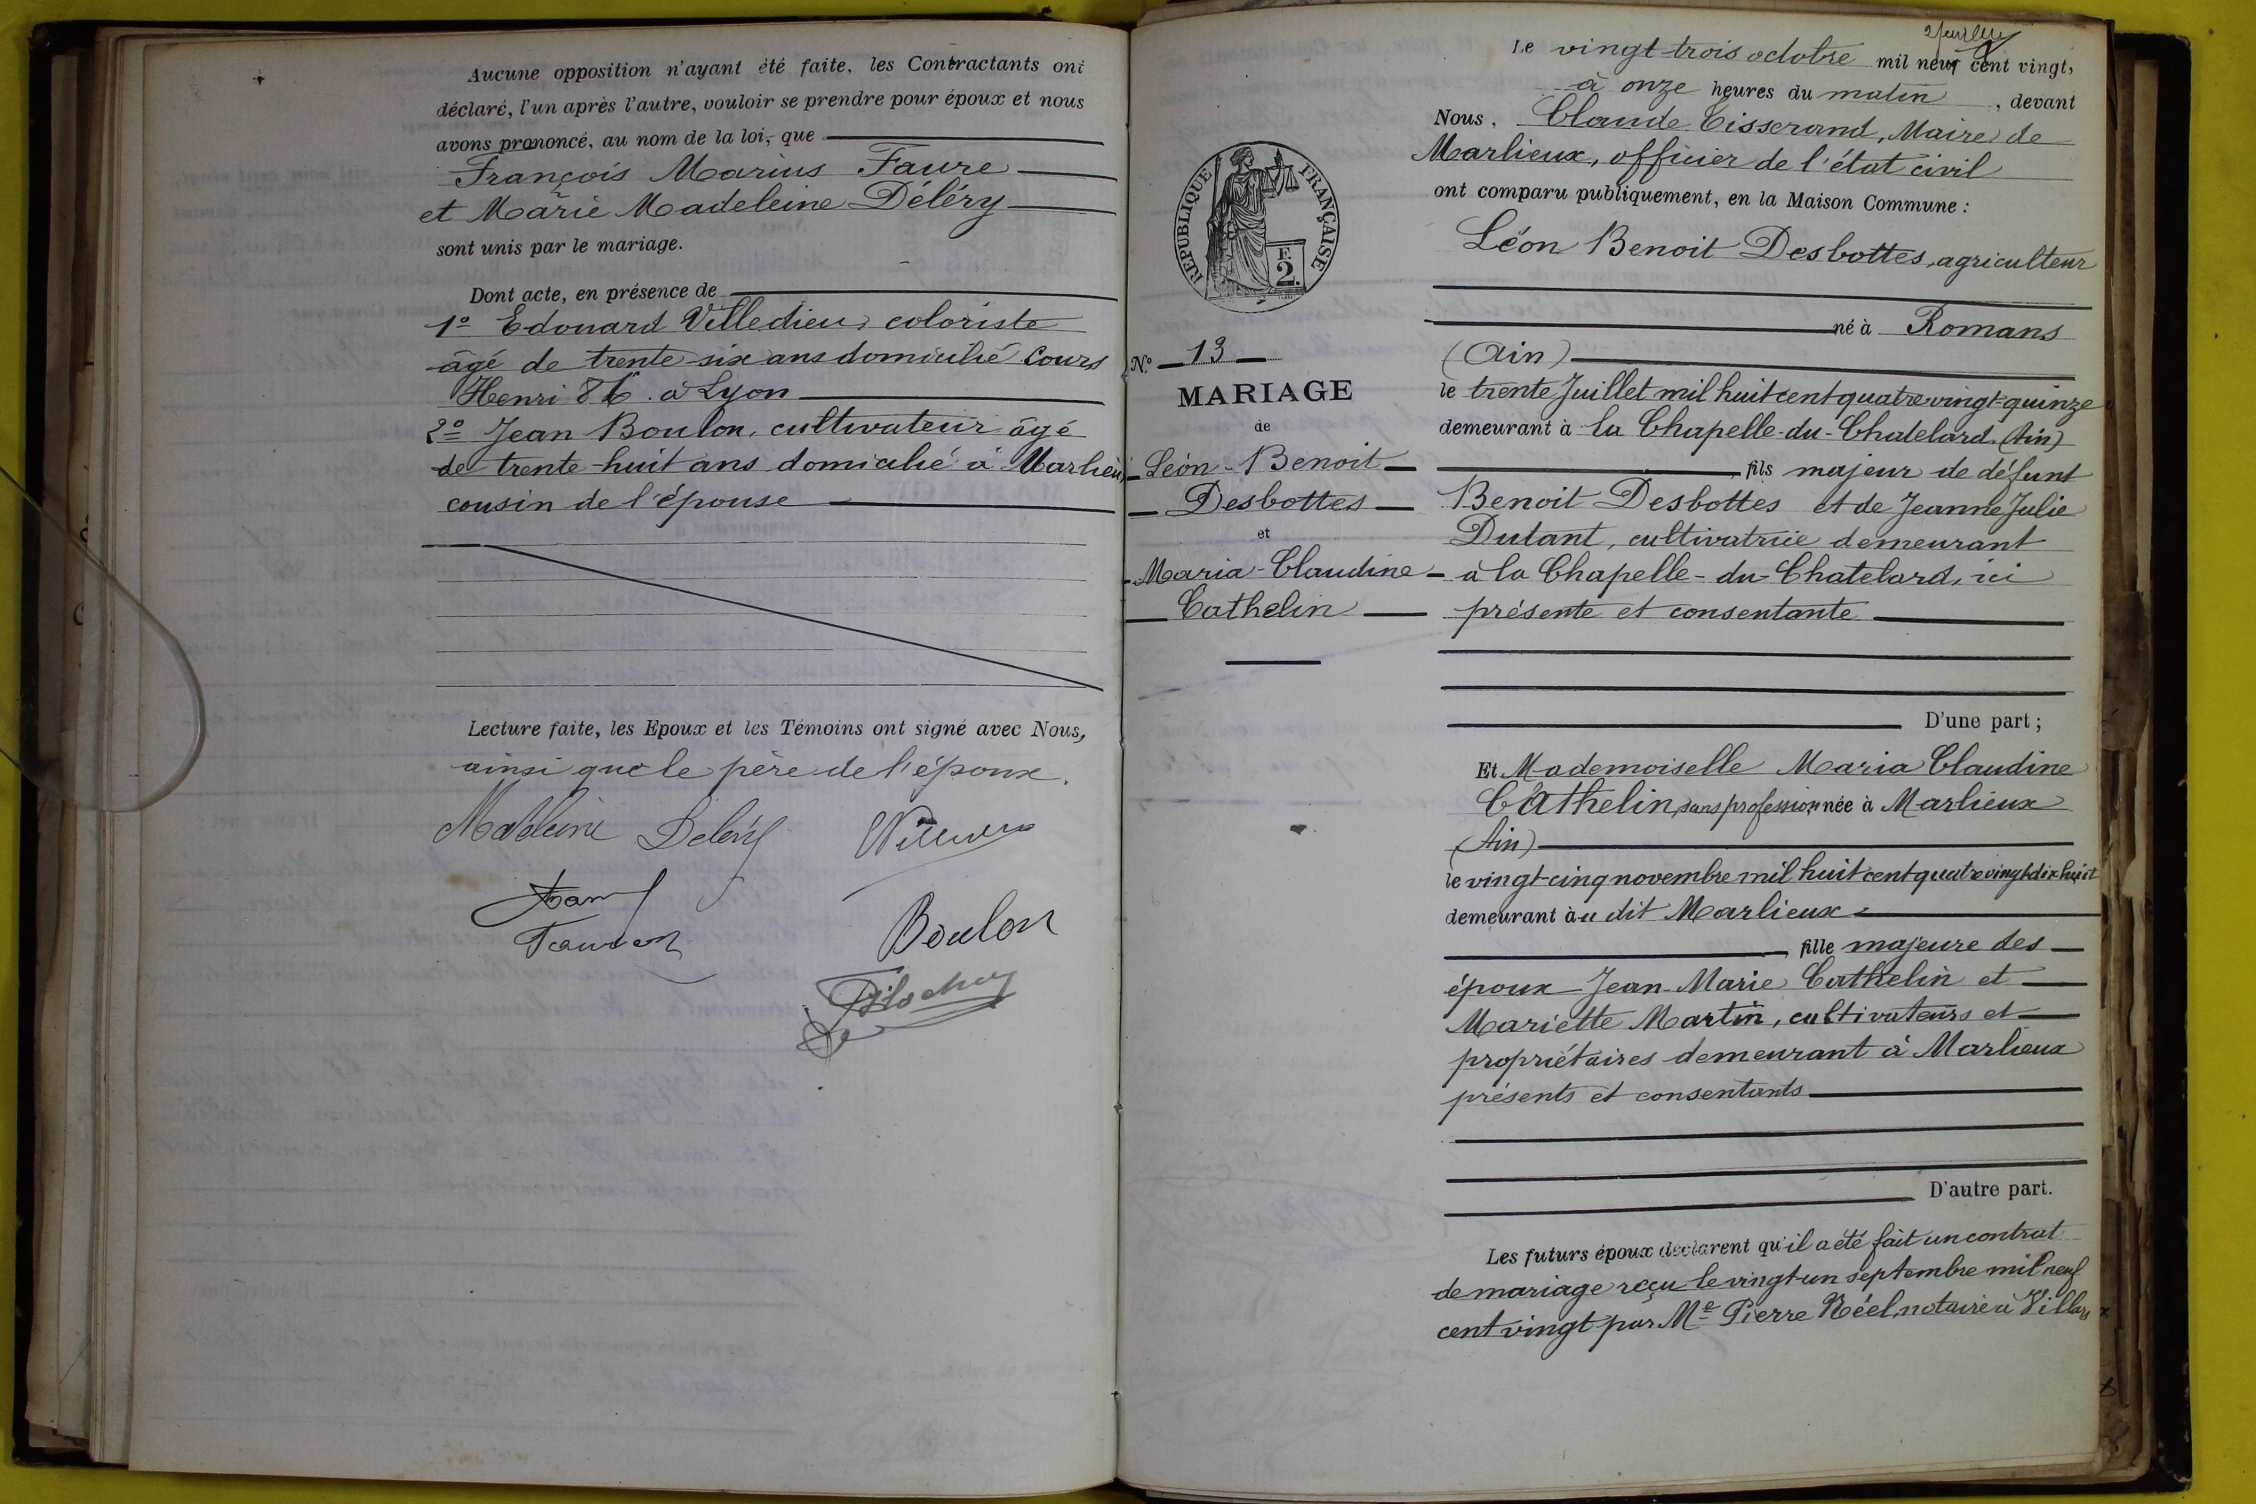 Aucune opposition n'ayant été faite, les Contractants ont
déclaré, l'un après l'autre, vouloir se prendre pour époux et nous
avons prononcé, au nom de la loi, que
François Marius Faure
et Marie Madeleine Déléry
sont unis par le mariage.
Dont acte, en présence de
1º Edouard Villedieu, coloriste
âgé de trente six ans domicilié Cours
Henri 86. à Lyon
2º Jean Boulon, cultivateur âgé
de trente-huit ans domicilié à Marlieux
cousin de l'épouse
Lecture faite, les Epoux et les Témoins ont signé avec Nous,
ainsi que le père de l'époux.
Madeleine Deléry
Boulon
RÉPUBLIQUE FRANÇAISE
F.
2.
Nº 13
MARIAGE
de
Léon-Benoit
Desbottes
et
Maria-Claudine
Cathelin
Le vingt-trois octobre mil neuf cent vingt,
à onze heures du matin, devant
Nous, Claude Tisserand, Maire de
Marlieux, officier de l'état civil
ont comparu publiquement, en la Maison Commune :
Léon Benoit Desbottes, agriculteur
né à Romans
(Ain)
le trente Juillet mil huit cent quatre vingt-quinze
demeurant à la Chapelle-du-Chatelard (Ain)
fils majeur de défunt
Benoit Desbottes et de Jeanne Julie
Dutant, cultivatrice demeurant
à la Chapelle-du-Chatelard, ici
présente et consentante
D'une part ;
Et Mademoiselle Maria Claudine
Cathelin, sans profession, née à Marlieux
(Ain)
le vingt-cinq novembre mil huit cent quatre vingt-dix huit
demeurant àu dit Marlieux
fille majeure des
époux Jean-Marie Cathelin et
Mariette Martin, cultivateurs et
propriétaires demeurant à Marlieux
présents et consentants
D'autre part.
Les futurs époux déclarent qu'il a été fait un contrat
de mariage reçu le vingt-un septembre mil neuf
cent vingt par Me Pierre Réel, notaire à Villars